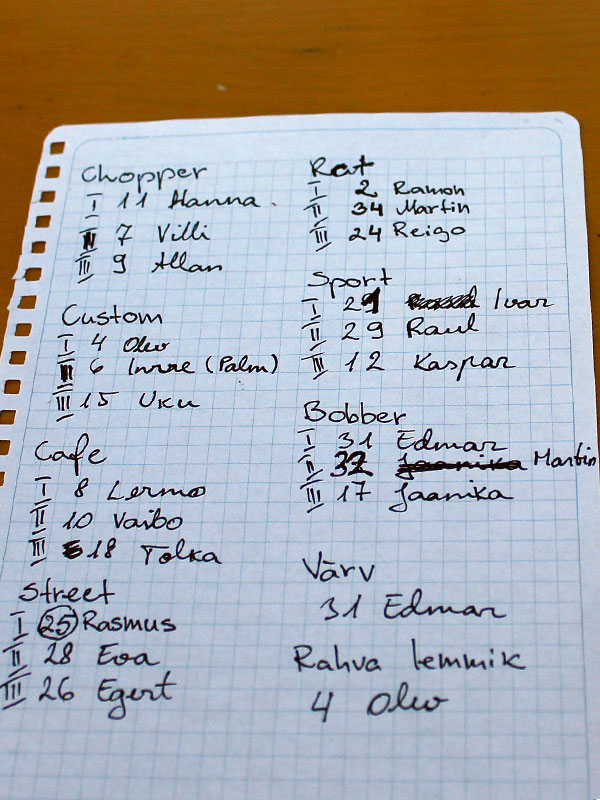 Chopper
I 11 Hanna.
II 7 Villi
III 9 Allan
Custom
I 4 Olev
II 6 (Palm)
III 15 Uku
Cafe
I 8 Lermo
II 10 Vaibo
III 18 Tolka
Street
I 25 Rasmus
II 28 Eva
III 26 Egert
Rat
I 2 Ramon
II 34 Martin
III 24 Reigo
Sport
I 21 Ivar
II 29 Raul
III 12 Kaspar
Bobber
I 31 Edmar
II 32 Jaanika Martin
III 17 Jaanika
Värv
31 Edmar
Rahva lemmik
4 Olev